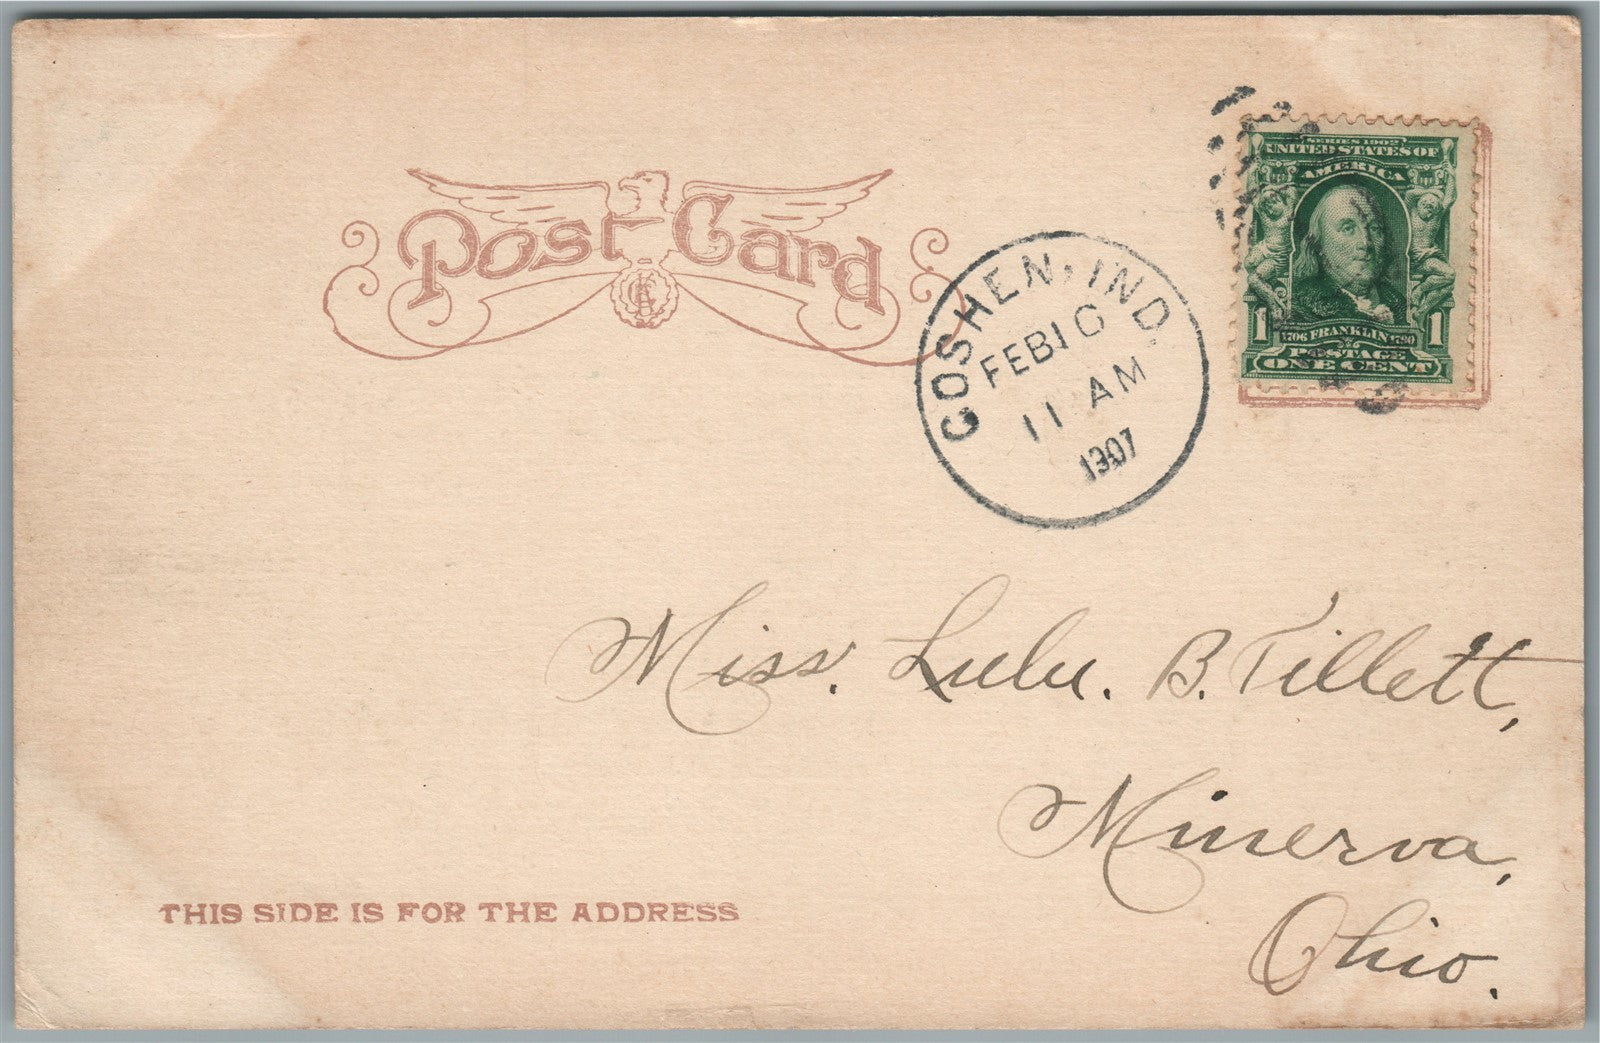 Post Card
SERIES 1902
UNITED STATES OF
AMERICA
1 1706 FRANKLIN 1790 1
POSTAGE
ONE CENT
GOSHEN, IND.
FEB 10
11 AM
1907
Miss. Lulu. B. Tillett,
Minerva,
Ohio.
THIS SIDE IS FOR THE ADDRESS